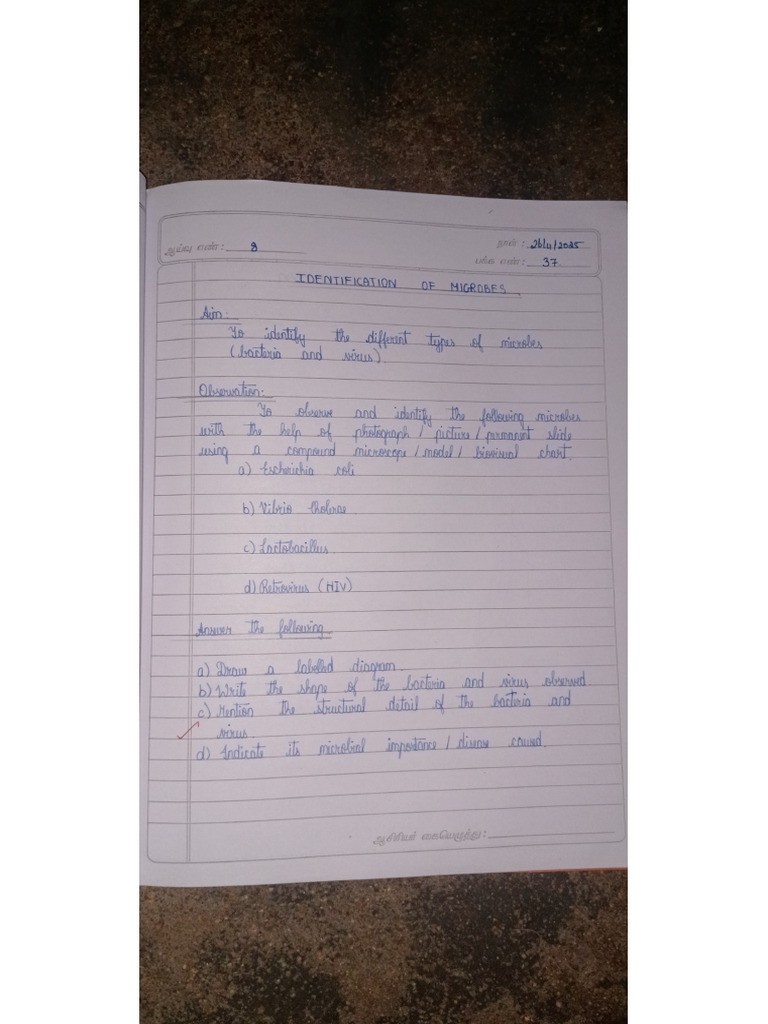 ஆய்வு எண் : 8
நாள் : 26/11/2025
பக்க எண் : 37
IDENTIFICATION OF MICROBES
Aim:
To identify the different types of microbes
(bacteria and virus)
Observation:-
To observe and identify the following microbes
with the help of photograph / picture / permanent slide
using a compound microscope / model / biovisual chart.
a) Escherichia coli
b) Vibrio Cholerae
c) Lactobacillus
d) Retrovirus (HIV)
Answer the following
a) Draw a labelled diagram
b) Write the shape of the bacteria and virus observed
c) Mention the structural detail of the bacteria and
virus.
d) Indicate its microbial importance / disease caused.
ஆசிரியர் கையெழுத்து :